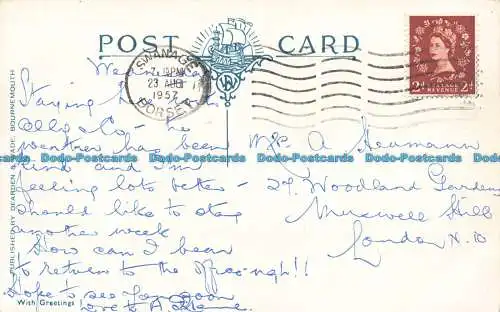 POST CARD
SWANAGE
23 AUG
1957
DORSET
2D 2D
POSTAGE
REVENUE
Staying
Olly & Co - the
weather has been
kind and I'm
feeling lots better -
should like to stay
another week
How can I bear
to return to the office - ugh!!
Hope to see you soon
Love to A.
A
29 Woodland Gardens
Muswell Hill
London N.10
PUBLISHED BY DEARDEN & WADE, BOURNEMOUTH
With Greetings
Dodo-Postcards Dodo-Postcards Dodo-Postcards Dodo-Postcards
Dodo-Postcards Dodo-Postcards Dodo-Postcards Dodo-Postcards